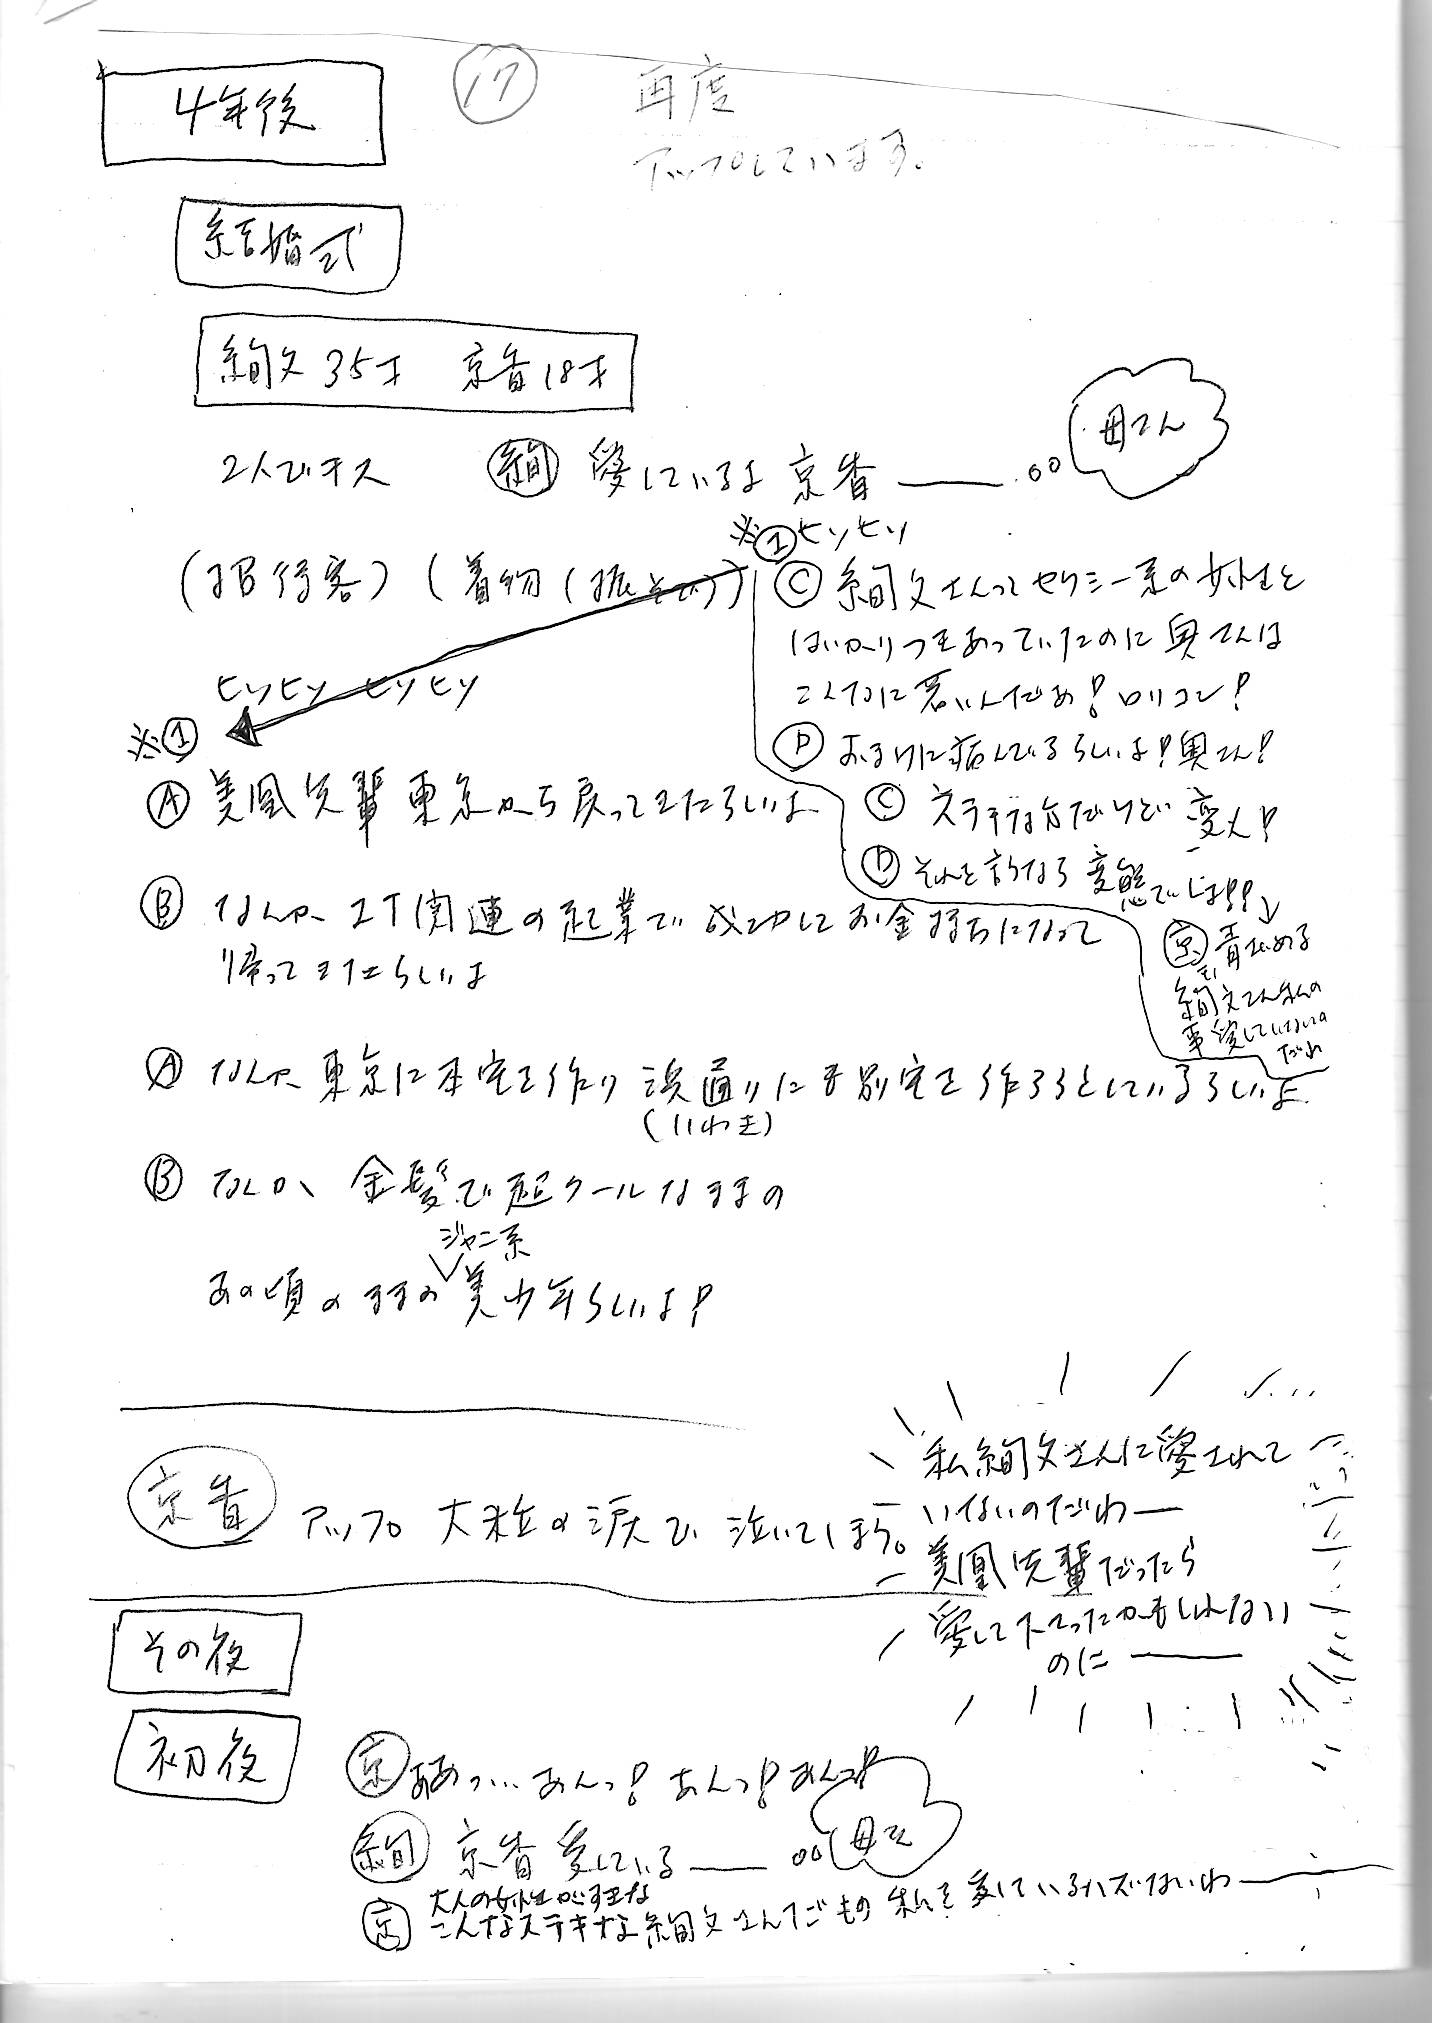 17
再度
アップしています。
4年後
結婚式
絢文35才 京香18才
2人でキス
絢 愛しているよ 京香――
母さん
(招待客)(着物(振そで))
ヒソヒソ ヒソヒソ
※①
Ⓐ 美凰先輩 東京から戻ってきたらしいよ
Ⓑ なんか、IT関連の起業で成功してお金持ちになって
帰ってきたらしいよ
Ⓐ なんか、東京に本宅を作り 浜通りにも別宅を作ろうとしているらしいよ
(いわき)
Ⓑ なんか、金髪で超クールなままの
ジャニ系
あの頃のままの美少年らしいよ!
※①ヒソヒソ
Ⓒ 絢文さんってセクシー系の女性と
ばっかりつきあっていたのに奥さんは
こんなに若いんだぁ!ロリコン!
Ⓓ おまけに病んでるらしいよ!奥さん!
Ⓒ ステキな方だけど変人!
Ⓓ それを言うなら変態では!?
京 青ざめる
絢文さん私の
事愛していないの
だわ
京香 アップ 大粒の涙で 泣いてしまう。
私絢文さんに愛されて
いないのだわ―
美凰先輩だったら
愛して下さったかもしれない
のに――
その夜
初夜
京 ああっ… あんっ! あんっ! あんっ!
絢 京香 愛している――
母さん
大人の女性が好きな
京 こんなステキな絢文さんだもの 私を愛しているハズないわ――